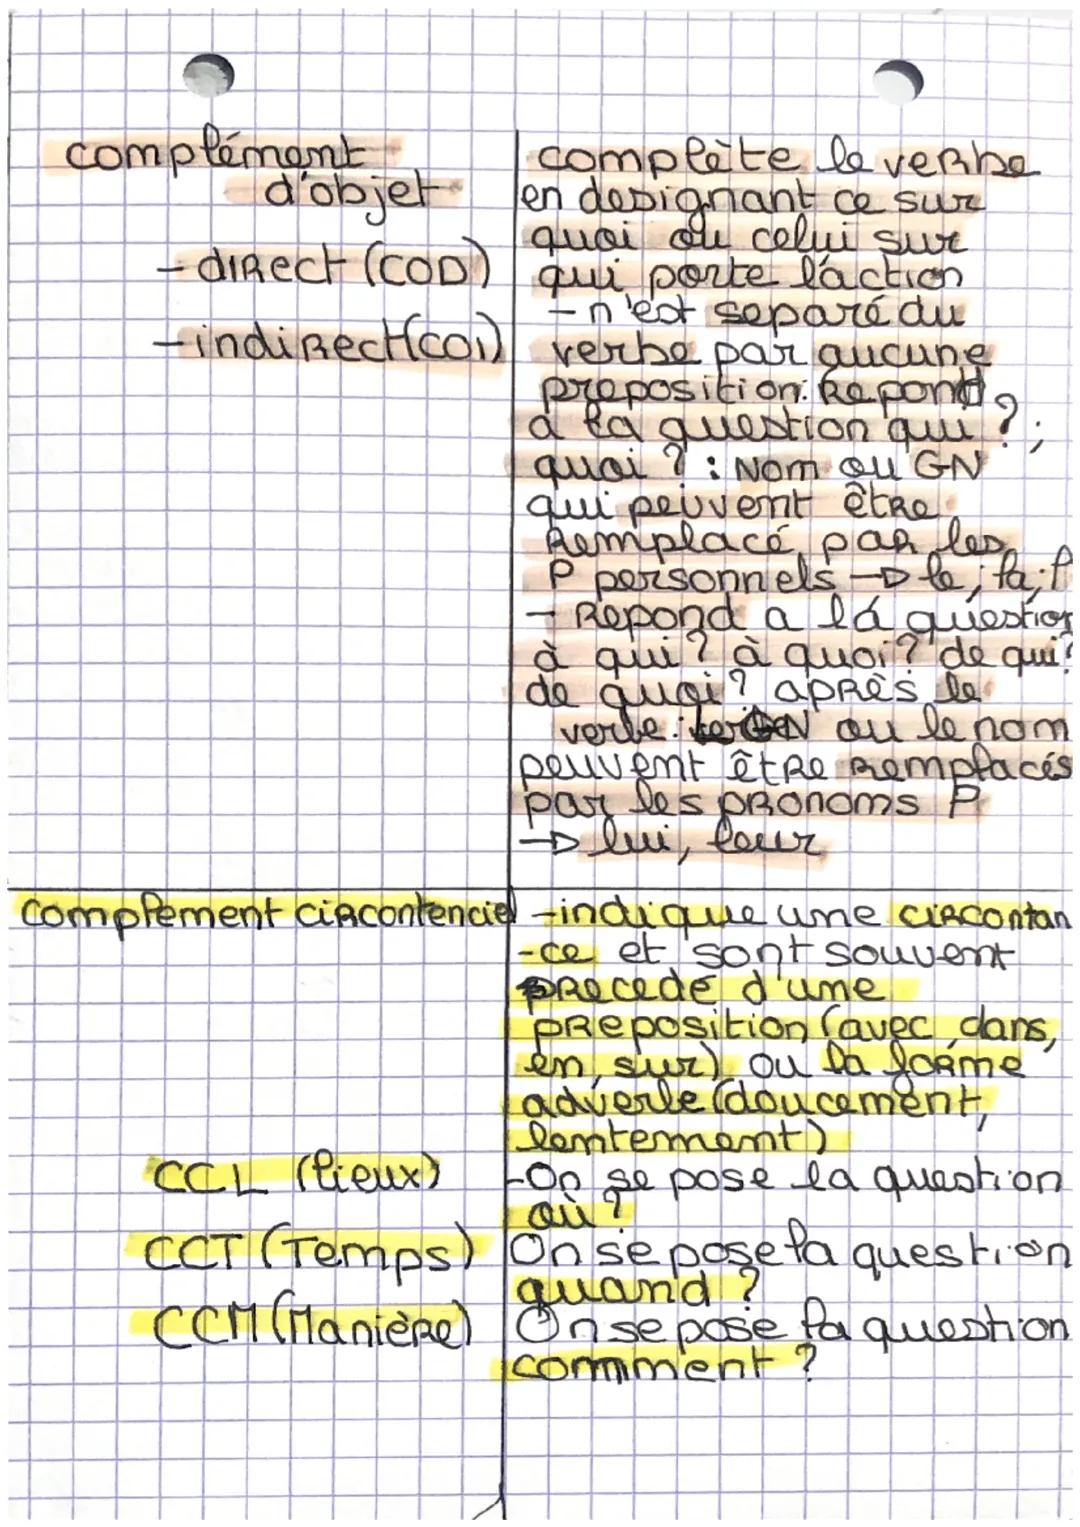 complément
d'objet
- direct (COD)
- indirect (COI)
complète le verbe
en designant ce sur
quoi ou celui sur
qui porte l'action
- n'est separé du
verbe par aucune
preposition. Repond
a la question qui ? ;
quoi ? : Nom ou GN
qui peuvent être
Remplacé par les
P personnels → le, la, l
- Repond a lá question
à qui ? à quoi ? de qui ?
de quoi ? après le
verbe : GN ou le nom
peuvent être Remplacés
par les pronoms P
→ lui, leur
complement circontenciel
- indique une circontan
-ce et sont souvent
precedé d'une
preposition (avec, dans,
en, sur) ou la forme
adverbe (doucement,
lentement)
CCL (lieux)
- On se pose la question
où ?
CCT (Temps)
On se pose la question
quand ?
CCM (Manière)
On se pose la question
comment ?